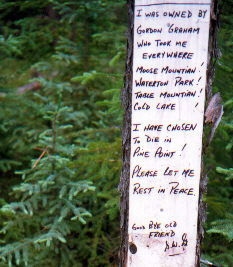 I WAS OWNED BY
GORDON GRAHAM
WHO TOOK ME
EVERYWHERE
MOOSE MOUNTAIN!
WATERTON PARK!
TABLE MOUNTAIN!
COLD LAKE!
I HAVE CHOSEN
TO DIE IN
PINE POINT!
PLEASE LET ME
REST IN PEACE.
GOOD BYE OLD
FRIEND